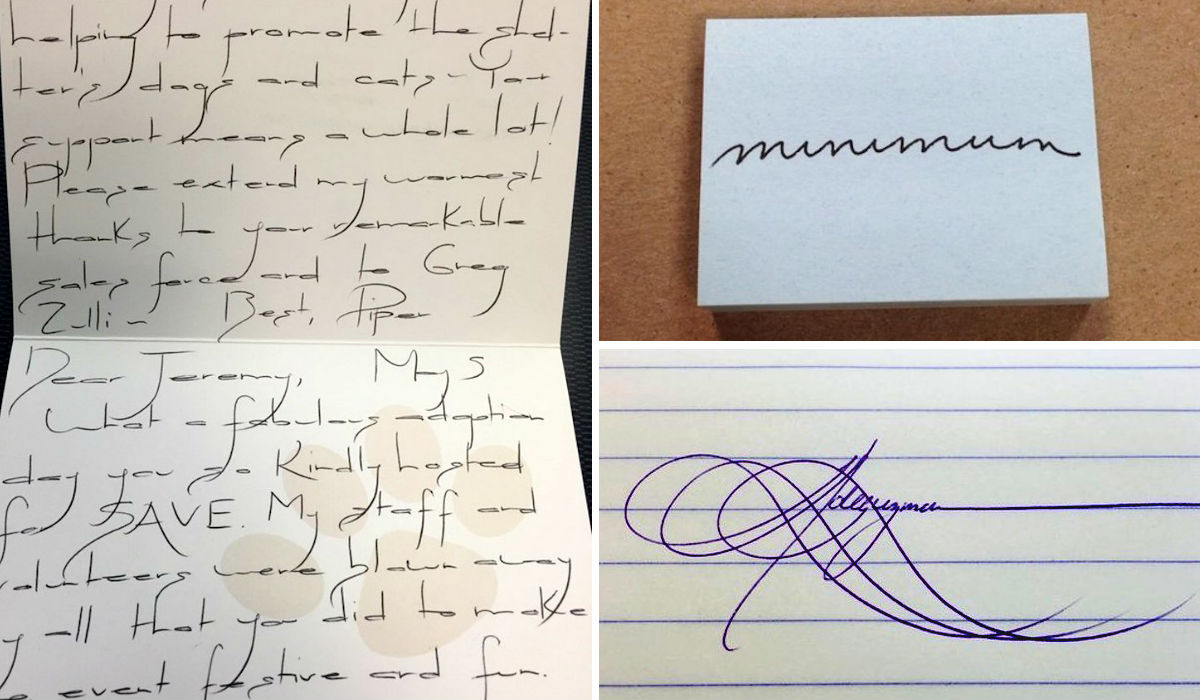 helping to promote the shel-
ter's dogs and cats - Your
support means a whole lot!
Please extend my warmest
thanks to your remarkable
sales force and to Greg
Zulli - Best, Piper
Dear Jeremy, May 5
What a fabulous adoption
day you so kindly hosted
for SAVE. My staff and
volunteers were blown away
y all that you did to make
e event festive and fun.
minimum